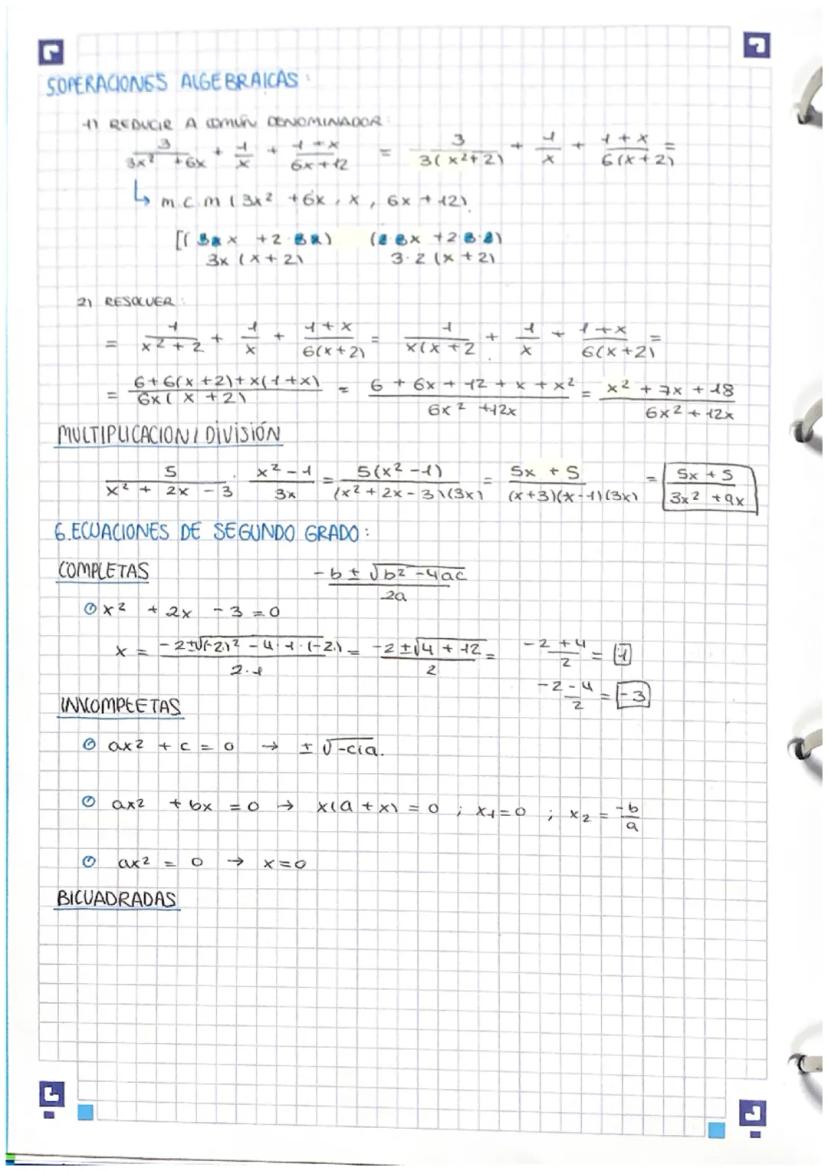 5.OPERACIONES ALGEBRAICAS:
1) REDUCIR A COMÚN DENOMINADOR:
3/(3x² + 6x) + 1/x + (1 + x)/(6x + 12) = 3/(3(x² + 2)) + 1/x + (1 + x)/(6(x + 2)) =
↳ m.c.m (3x² + 6x, x, 6x + 12)
3x (x + 2) 3·2 (x + 2)
2) RESOLVER:
= 1/(x² + 2) + 1/x + (1 + x)/(6(x + 2)) = 1/(x(x + 2) + 1/x + (1 + x)/(6(x + 2)) =
= (6 + 6(x + 2) + x(1 + x))/(6x(x + 2)) = (6 + 6x + 12 + x + x²)/(6x² + 12x) = (x² + 7x + 18)/(6x² + 12x)
MULTIPLICACION / DIVISIÓN
5/(x² + 2x - 3) · (x² - 1)/(3x) = 5(x² - 1)/((x² + 2x - 3)(3x)) = (5x + 5)/((x + 3)(x - 1)(3x)) = (5x + 5)/(3x² + 9x)
6.ECUACIONES DE SEGUNDO GRADO:
COMPLETAS (-b ± √(b² - 4ac))/(2a)
x² + 2x - 3 = 0
x = (-2 ± √((-2)² - 4·1·(-2)))/(2·1) = (-2 ± √(4 + 12))/2 = (-2 + 4)/2 = 1
(-2 - 4)/2 = -3
INKOMPLETAS
ax² + c = 0 → ± √-c/a.
ax² + bx = 0 → x(a + x) = 0 ; x1 = 0 ; x2 = -b/a
ax² = 0 → x = 0
BICUADRADAS